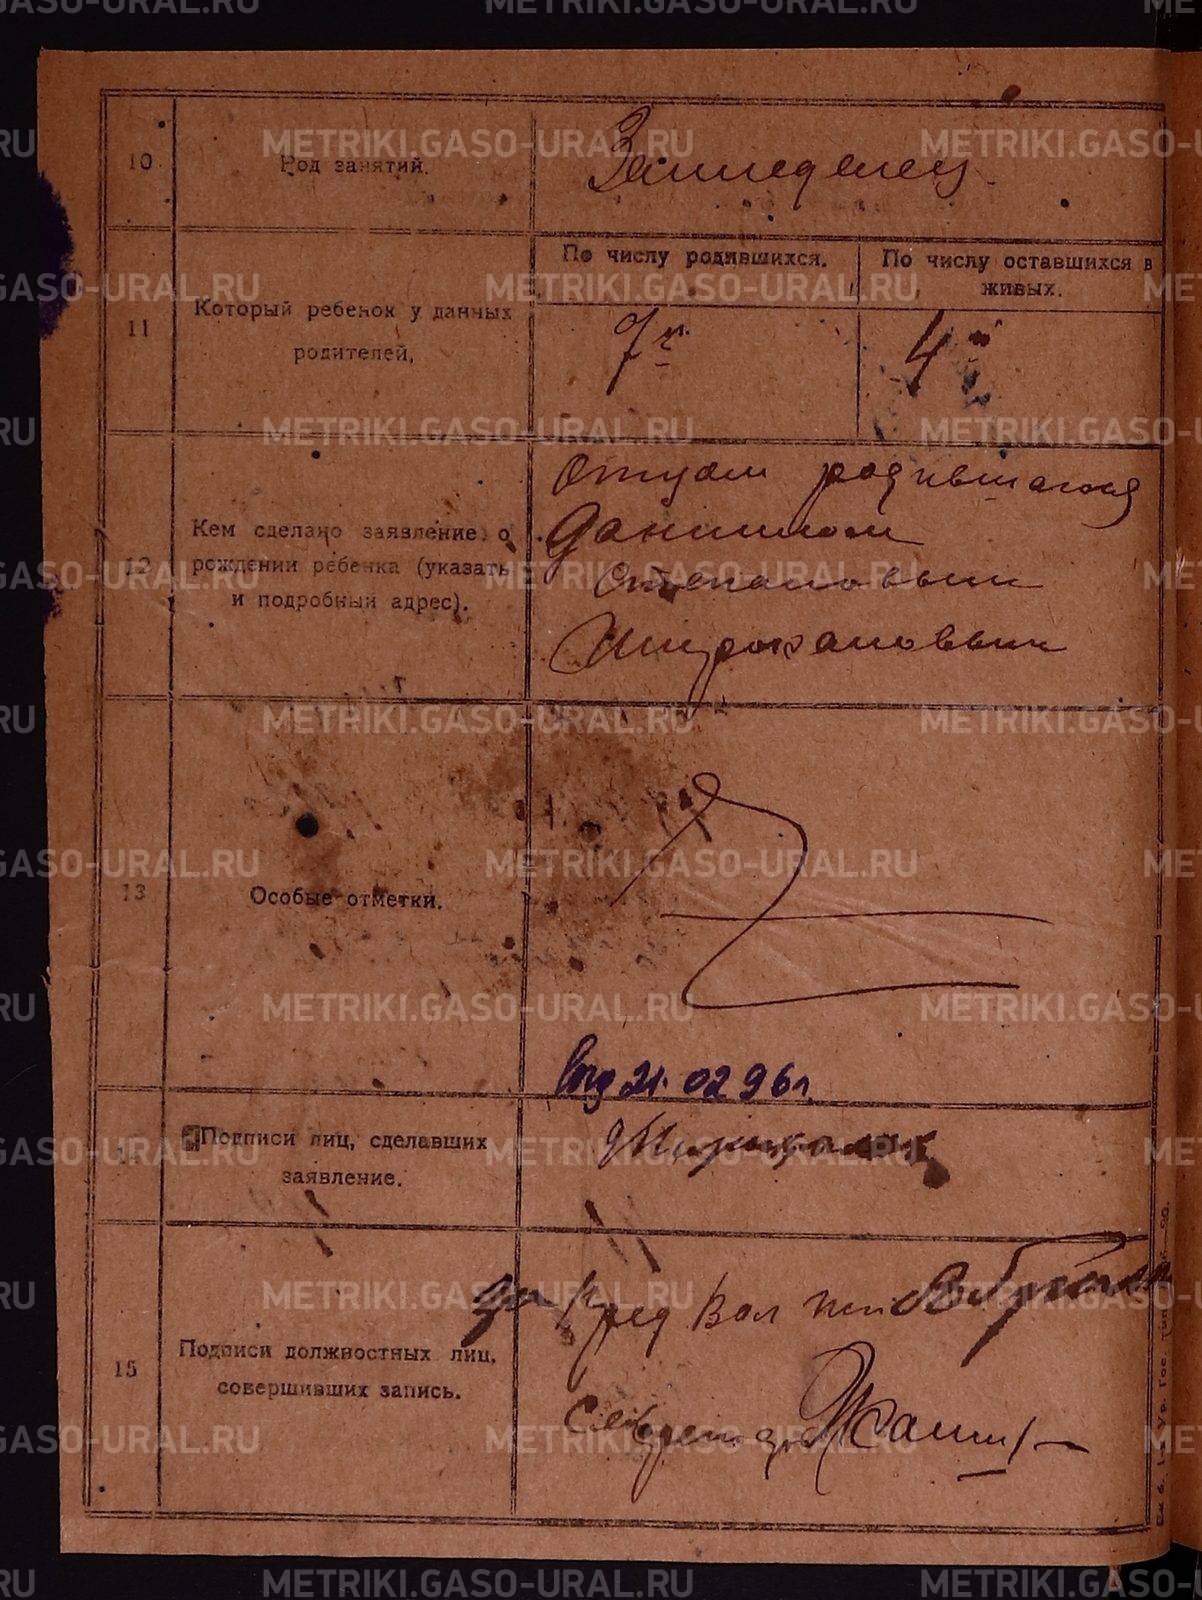 10
Род занятий.
Земледелец
11
Который ребенок у данных
родителей.
По числу родившихся.
По числу оставшихся в
живых.
7й
4й
12
Кем сделано заявление о
рождении ребенка (указать
и подробный адрес).
Отцом родившагося
Даниилом
Степановым
13
Особые отметки.
21.02 96 г.
14
Подписи лиц, сделавших
заявление.
15
Подписи должностных лиц,
совершивших запись.
Пред Вол
METRIKI.GASO-URAL.RU